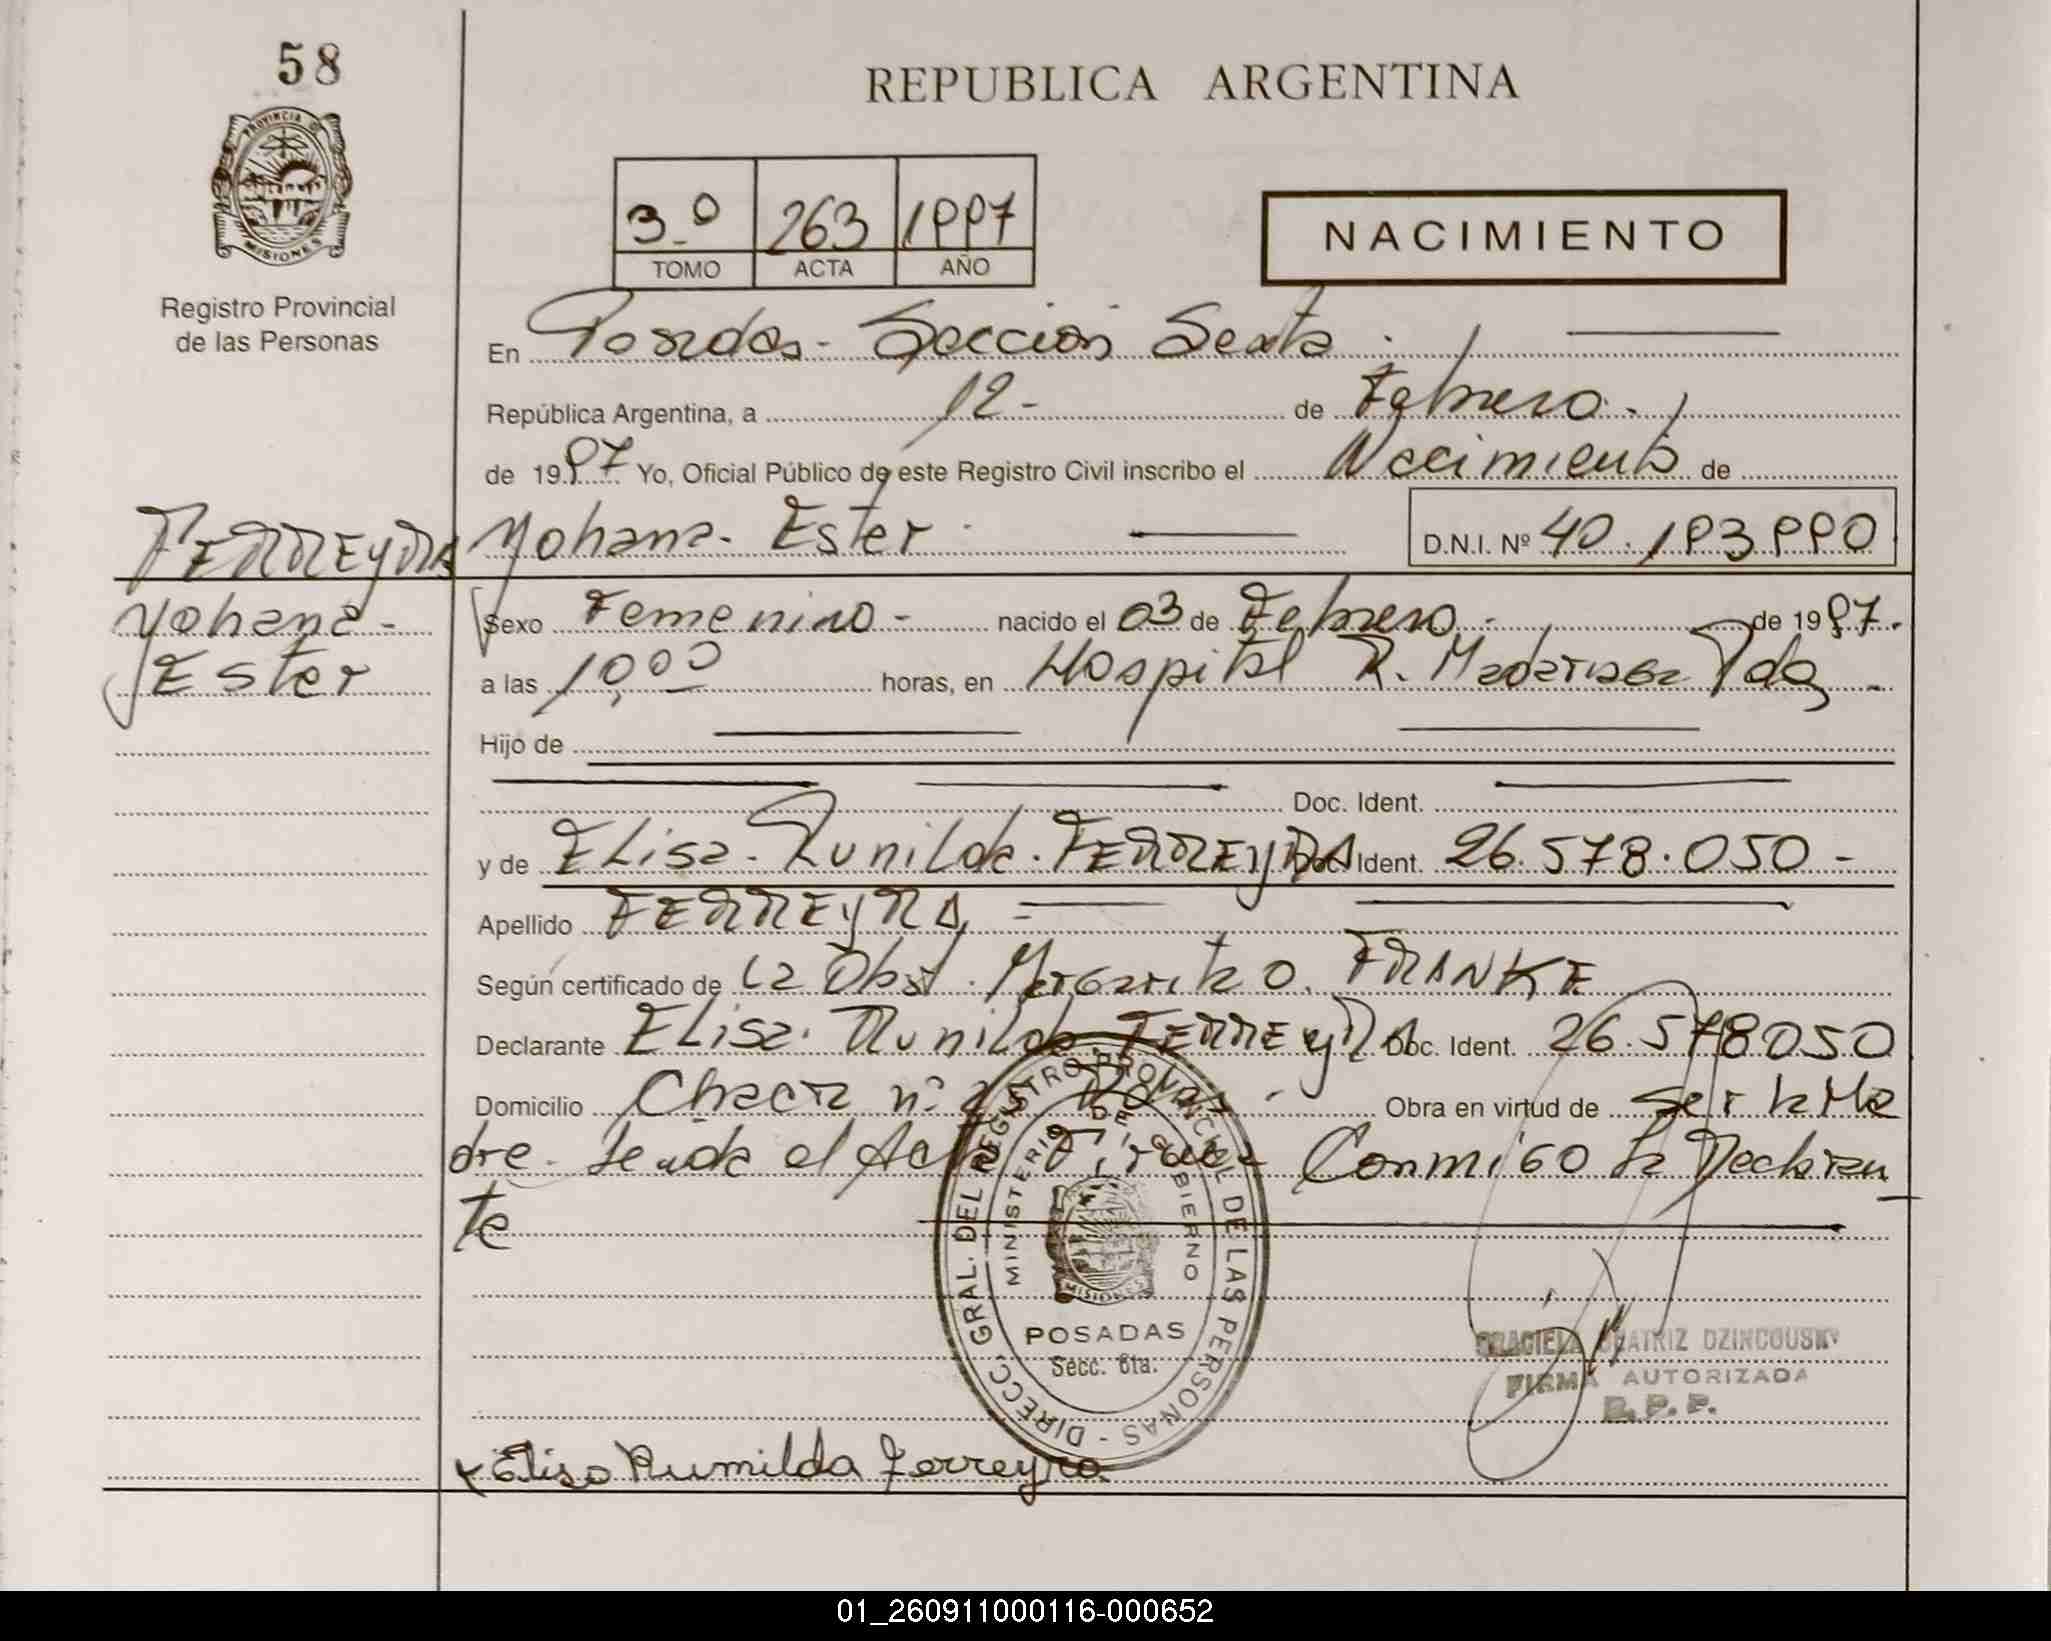 58
REPUBLICA ARGENTINA
PROVINCIA D
MISIONES
Registro Provincial
de las Personas
3º 263 1997
TOMO ACTA AÑO
NACIMIENTO
En Posadas - Sección Sexta
República Argentina, a 12 - de Febrero.
de 1997 Yo, Oficial Público de este Registro Civil inscribo el Nacimiento de
FERREYRA Yohana - Ester D.N.I. Nº 40.193990
Yohana -
Ester
Sexo Femenino - nacido el 03 de Febrero de 1997.
a las 10,00 horas, en Hospital R. Madariaga Pdas
Hijo de
Doc. Ident.
y de Elisa - Runilda. FERREYRA Doc. Ident. 26.578.050 -
Apellido FERREYRA =
Según certificado de la Obst. Margarita O. FRANKE
Declarante Elisa. Runilda FERREYRA Doc. Ident. 26.578050
Domicilio Chacra nº Obra en virtud de ser la Ma
dre - leída el Acta Firma Conmigo la Declaran
te
DIRECC. GRAL. DEL REGISTRO PROVINCIAL DE LAS PERSONAS -
MINISTERIO DE GOBIERNO
MISIONES
POSADAS
Secc. 6ta.
GRACIELA BEATRIZ DZINCOUSKY
FIRMA AUTORIZADA
R. P. P.
x Elisa Rumilda Ferreyra
01_260911000116-000652